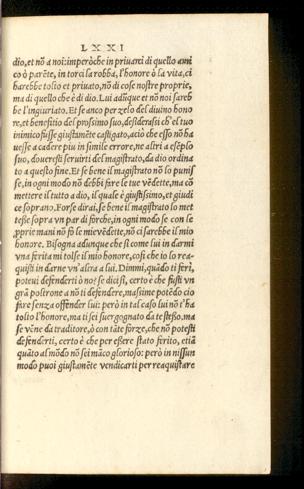 LXXI
dio, et nō a noi: imperòche in priuarci di quello ami
co ò parēte, in torci la robba, l'honore ò la vita, ci
harebbe tolto et priuato, nō di cose nostre proprie,
ma di quello che è di dio. Lui adūque et nō noi sareb
be l'ingiuriato. Et se anco per zelo del diuino hono
re, et benefitio del prossimo suo, desiderasti ch'el tuo
inimico fusse giustamēte castigato, acio che esso nō ha
uesse a cadere piu in simile errore, ne altri a esēplo
suo, doueresti seruirti del magistrato, da dio ordina
to a questo fine. Et se bene il magistrato nō lo punis
se, in ogni modo nō debbi fare le tue vēdette, ma cō
mettere il tutto a dio, il quale è giustissimo, et giudi
ce soprano. Forse dirai, se bene il magistrato lo met
tesse sopra vn par di forche, in ogni modo se con le
proprie mani nō fo le mie vēdette, nō ci sarebbe il mio
honore. Bisogna adunque che si come lui in darmi
vna ferita mi tolse il mio honore, cosi che io lo rea-
quisti in darne vn'altra a lui. Dimmi, quādo ti ferì,
poteui defenderti ò no? se dici si, certo è che fusti vn
grā poltrone a nō ti defendere, massime potēdo cio
fare senza offender lui: però in tal caso lui nō t'ha
tolto l'honore, ma ti sei suergognato da te stesso. ma
se vēne da traditore, ò con tāte forze, che nō potesti
defenderti, certo è che per essere stato ferito, etiā
quāto al mōdo nō sei māco glorioso: però in nissun
modo puoi giustamēte vendicarti per reaquistare